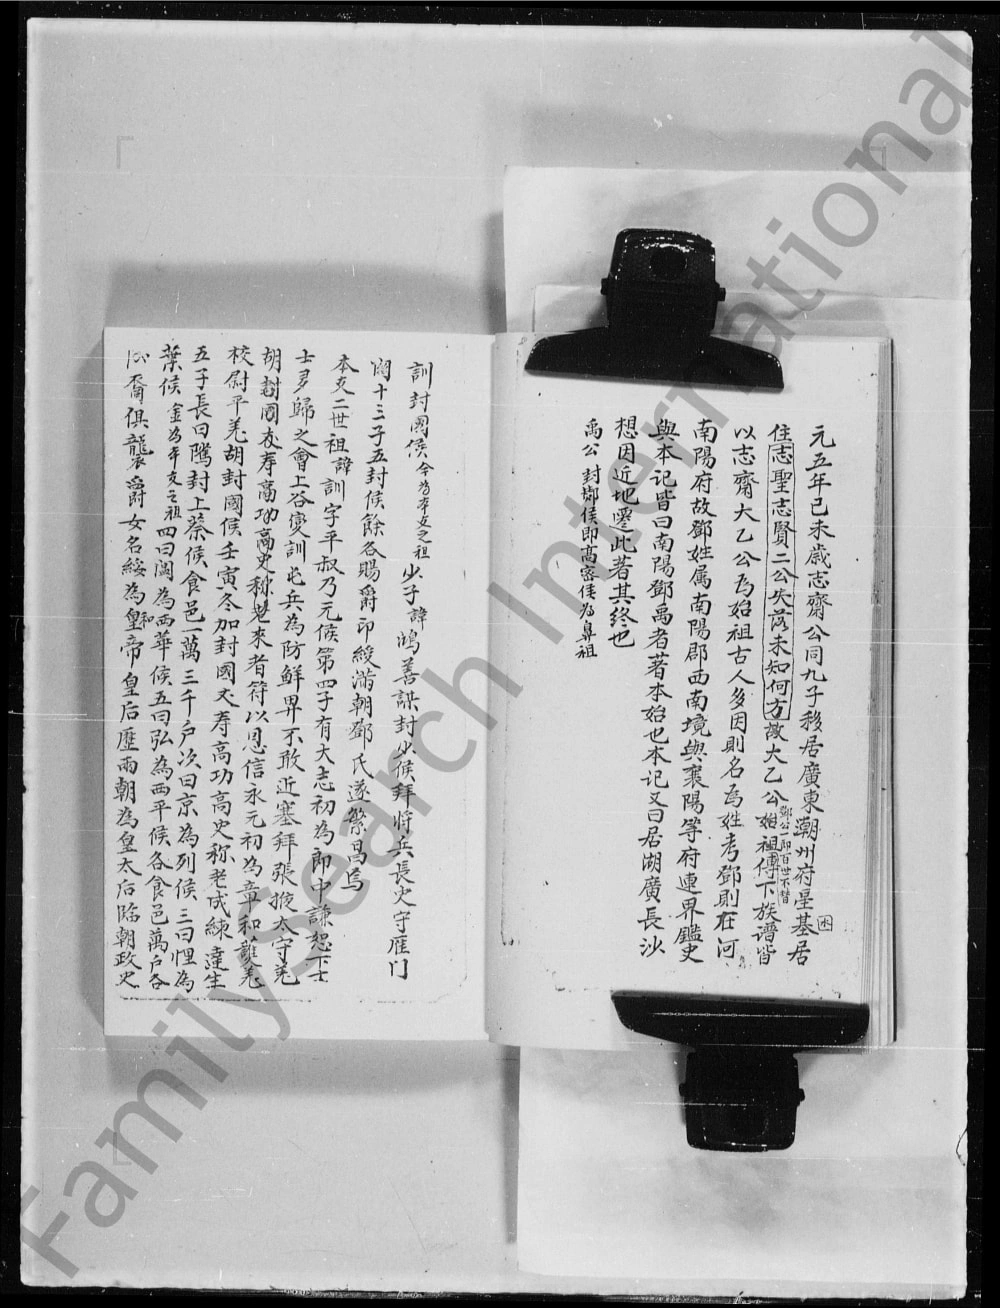 元五年已未歲志齋公同九子移居廣東潮州府呈基居
住志聖志賢二公失落未知何方故大乙公始祖傳下族谱皆
鄧公一郎百世不替
以志齋大乙公為始祖古人多因則名為姓考鄧則在河
南陽府故鄧姓属南陽郡西南境與襄陽等府連界鑑史
與本记皆曰南陽鄧禹者著本始也本记又曰居湖廣長沙
想因近地遷此著其終也
禹公封鄼侯即高密侯为鼻祖
訓封國侯今为本支之祖少子諱鴻善謀封少侯拜将兵長史守雁门
閣十三子五封侯餘各賜爵印綬滿朝鄧氏遂繁昌焉
本支二世祖諱訓字平叔乃元侯第四子有大志初為郎中謙恕下士
士多歸之會上谷变訓屯兵為防鮮界不敢近塞拜張掖太守羌
胡國友寿高功高史称老來者符以恩信永元初為章和護羌
校尉平羌胡封國侯壬寅冬加封國父寿高功高史称老成練達生
五子長曰隲封上蔡侯食邑一萬三千户次曰京為列侯三曰悝為
葉侯金为本支之祖四曰閶為西華侯五曰弘為西平侯各食邑萬户各
裔俱襲爵女名綏為和皇帝皇后歷兩朝為皇太后臨朝政史
FamilySearch International